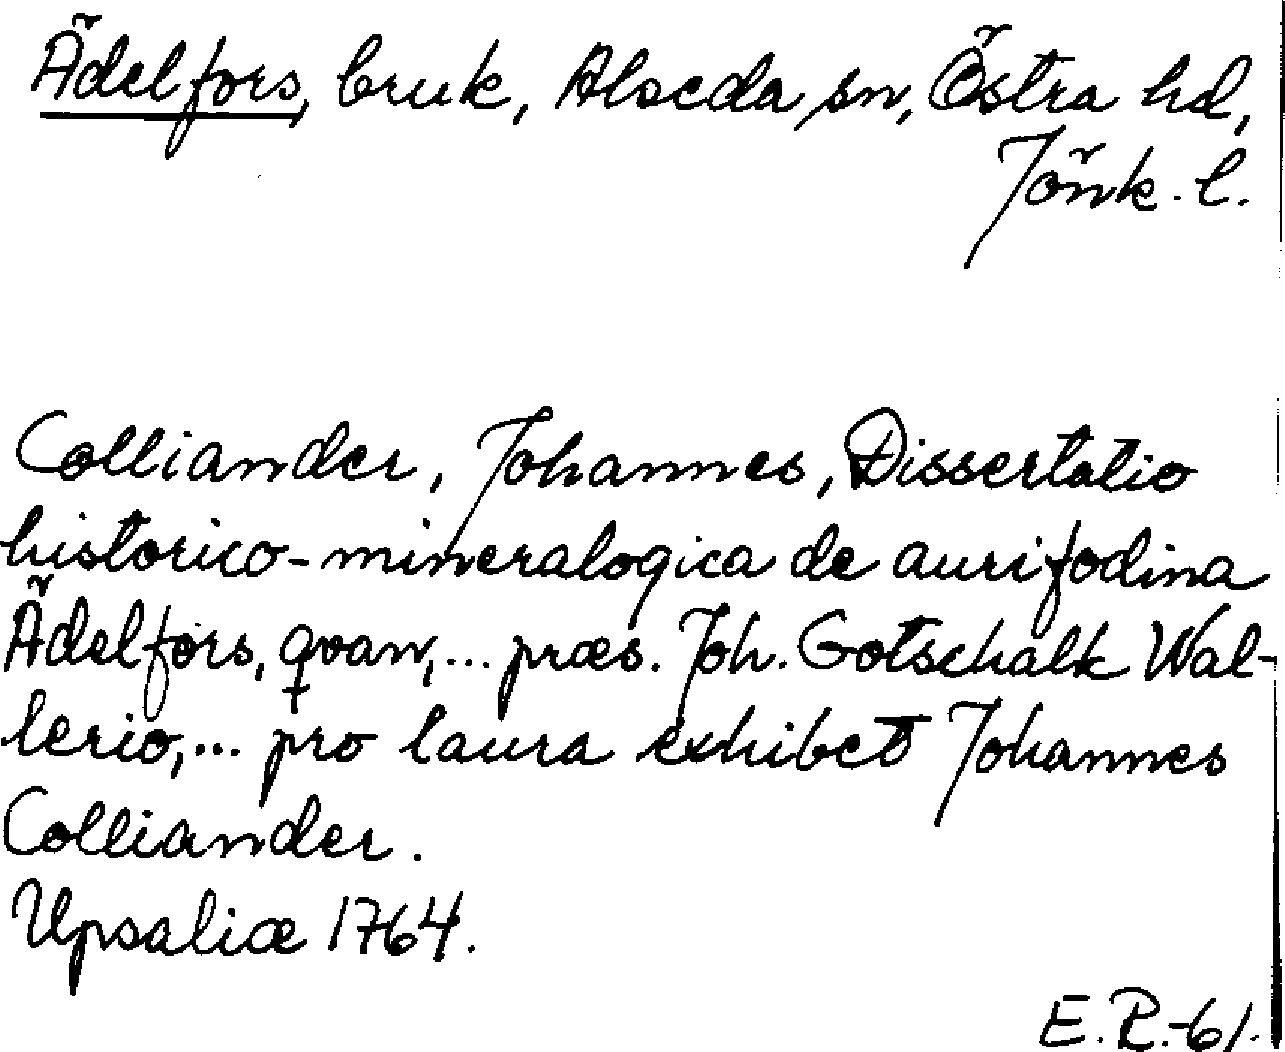 Ädelfors, bruk, Alseda sn, Östra hd,
Jönk. l.
Colliander, Johannes, Dissertatio
historico-mineralogica de aurifodina
Ädelfors, qvam,... præs. Joh. Gotschalk Wal-
lerio,... pro laura exhibet Johannes
Colliander.
Upsaliæ 1764.
E.R.-61.